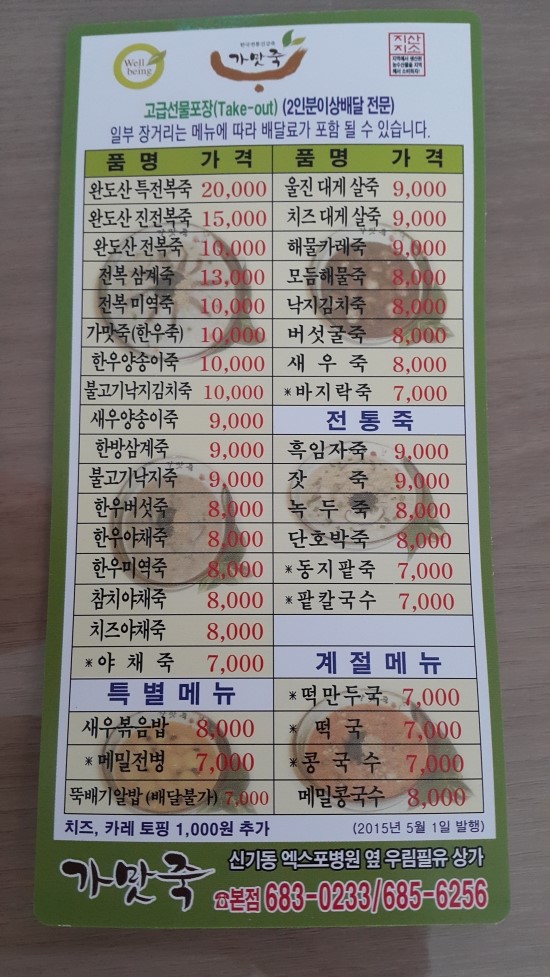 Well
being
한국전통건강죽
가맛죽
지산
지소
지역에서 생산된
농수산물을 지역
에서 소비하자!
고급선물포장(Take-out) (2인분이상배달 전문)
일부 장거리는 메뉴에 따라 배달료가 포함 될 수 있습니다.
품 명 가 격 품 명 가 격
완도산 특전복죽 20,000 울진 대게 살죽 9,000
완도산 진전복죽 15,000 치즈 대게 살죽 9,000
완도산 전복죽 10,000 해물카레죽 9,000
전복 삼계죽 13,000 모듬해물죽 8,000
전복 미역죽 10,000 낙지김치죽 8,000
가맛죽(한우죽) 10,000 버섯굴죽 8,000
한우양송이죽 10,000 새 우 죽 8,000
불고기낙지김치죽 10,000 *바지락죽 7,000
새우양송이죽 9,000 전통죽
한방삼계죽 9,000 흑임자죽 9,000
불고기낙지죽 9,000 잣 죽 9,000
한우버섯죽 8,000 녹 두 죽 8,000
한우야채죽 8,000 단호박죽 8,000
한우미역죽 8,000 *동지팥죽 7,000
참치야채죽 8,000 *팥칼국수 7,000
치즈야채죽 8,000
*야 채 죽 7,000 계절메뉴
특별메뉴 *떡만두국 7,000
새우볶음밥 8,000 * 떡 국 7,000
*메밀전병 7,000 *콩 국 수 7,000
뚝배기알밥(배달불가) 7,000 메밀콩국수 8,000
치즈, 카레 토핑 1,000원 추가 (2015년 5월 1일 발행)
가맛죽
신기동 엑스포병원 옆 우림필유 상가
☎본점 683-0233/685-6256